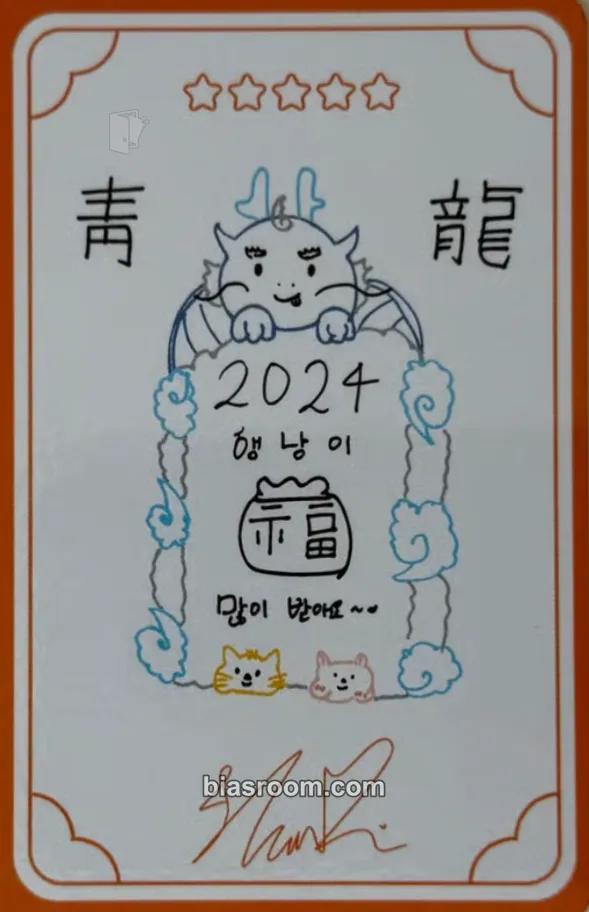 靑 龍
2024
행낭이
福
많이 받아요~~
biasroom.com